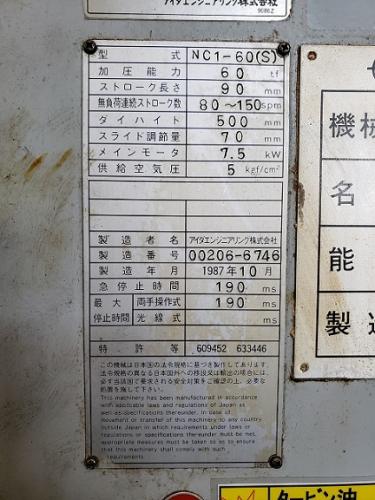 アイダエンジニアリング株式会社
型式 NC1-60(S)
加圧能力 60 tf
ストローク長さ 90 mm
無負荷連続ストローク数 80~150 spm
ダイハイト 500 mm
スライド調節量 70 mm
メインモータ 7.5 kW
供給空気圧 5 kgf/cm²
製造者名 アイダエンジニアリング株式会社
製造番号 00206-6746
製造年月 1987年10月
急停止時間 190 ms
最大停止時間 両手操作式 190 ms
光線式 ms
特許等 609452 633446
この機械は日本国の法令規格に基づき製作してあります。
法令規格の異なる日本国外への移設又は輸出の場合には
必ず当該国で要求される安全対策をご確認の上、必要な
処置を施して下さい。
This machinery has been manufactured in accordance
with applicable laws and regulations of Japan as
well as specifications thereunder. In case of
movement or transfer of this machinery to any country
outside Japan in which requirements under laws or
regulations or specifications thereunder must be met,
appropriate measures must be taken to ensure
that this machinery shall comply with such
requirements.
機械
名
能
製造
タービン油